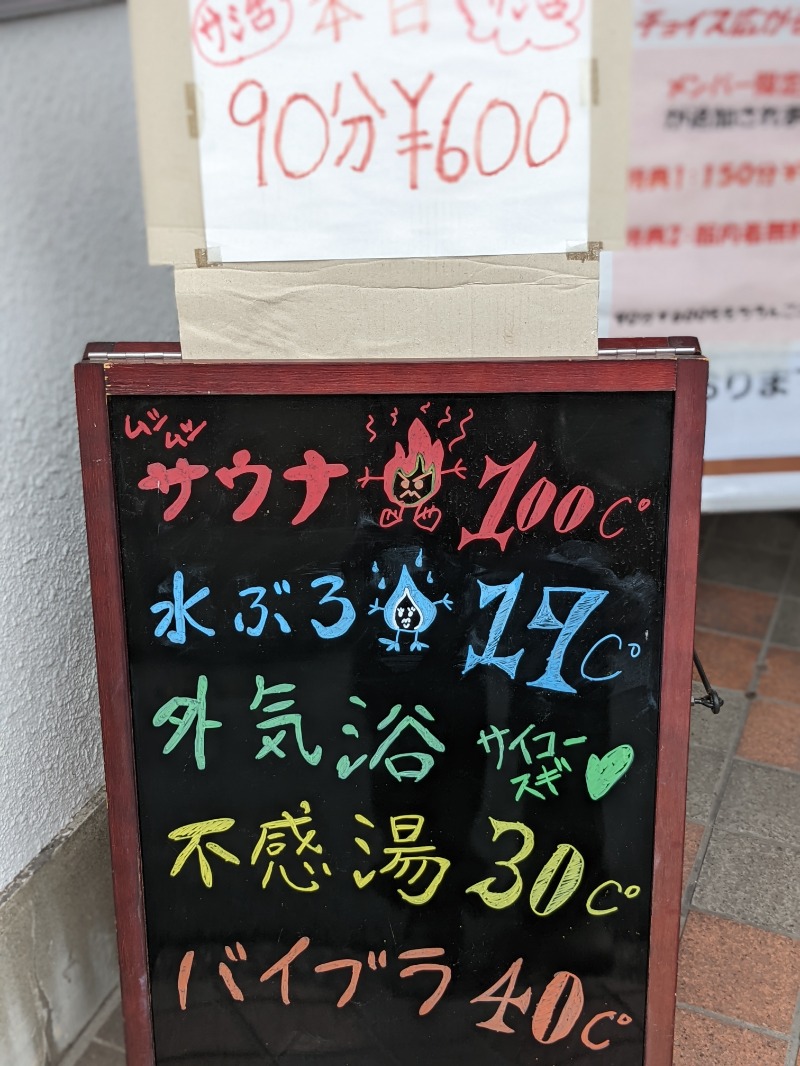 サ活 本日 サ活
90分¥600
チョイス広が
メンバー限定
が追加されま
特典1:150分¥
特典2:館内着無料
ムシムシ
サウナ 100C°
水ぶろ 17C°
外気浴 サイコースギ
不感湯 30C°
バイブラ 40C°
ありま